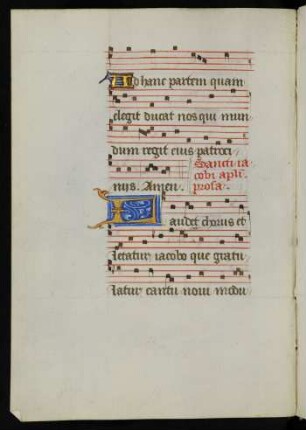 Ad hanc partem quam
elegit ducat nos qui mun
dum regit eius patroci
nijs. Amen.
Sancti ia
cobi apli
prosa.
Gaudet chorus et
letatur iacobo que gratu
latur cantu novi modu